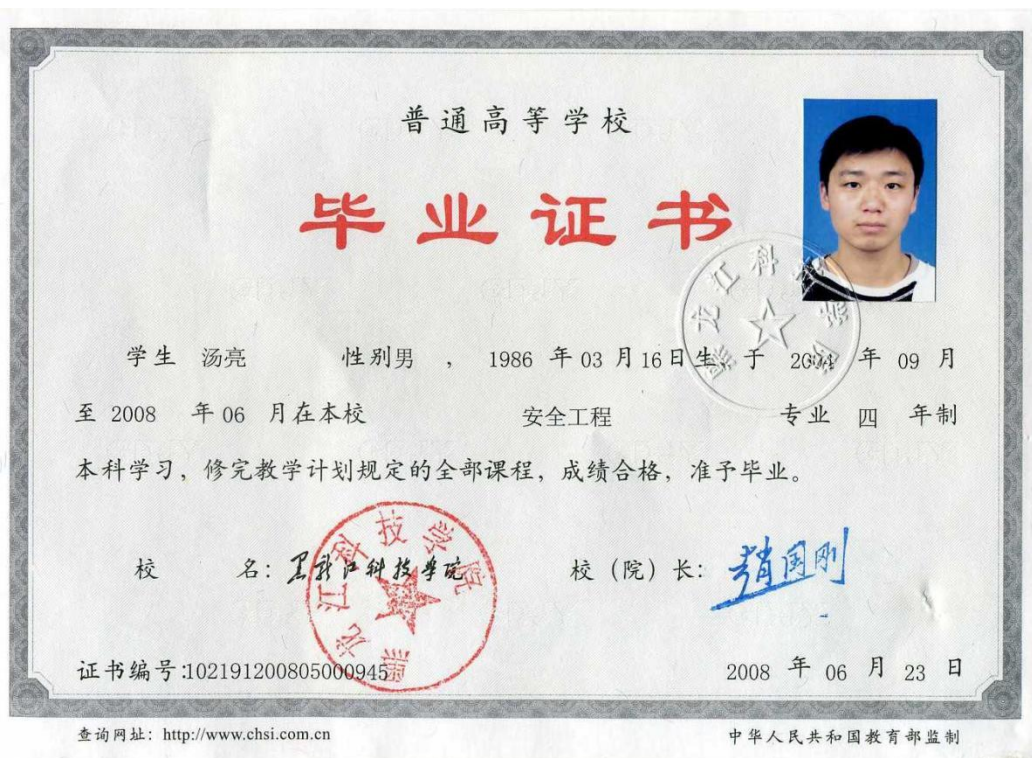 普通高等学校
毕业证书
学生 汤亮 性别男 , 1986 年 03 月 16 日生于 2004 年 09 月
至 2008 年 06 月在本校 安全工程 专业 四 年制
本科学习，修完教学计划规定的全部课程，成绩合格，准予毕业。
校 名：黑龙江科技学院 校（院）长：赵国刚
黑龙江科技学院
黑龙江科技学院
证书编号:102191200805000945 2008 年 06 月 23 日
查询网址：http://www.chsi.com.cn 中华人民共和国教育部监制